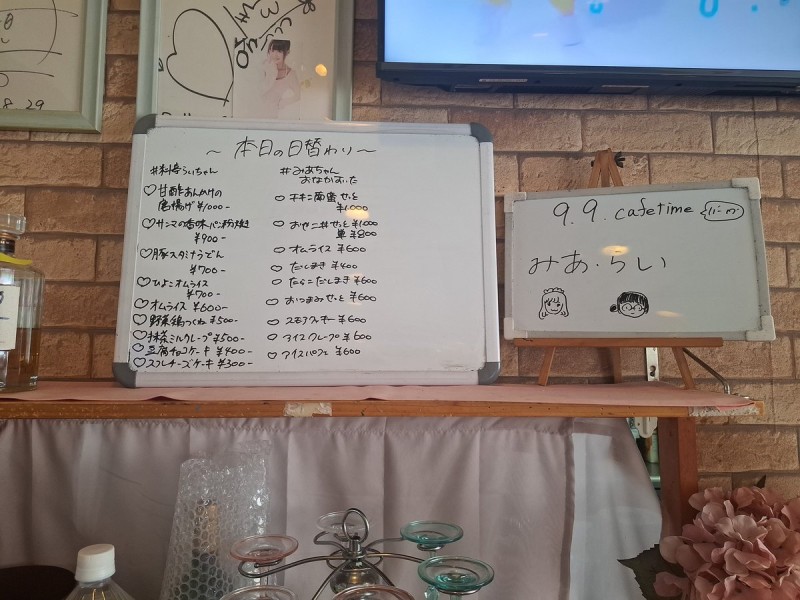 8 29
～ 本日の日替わり～
#料亭らいちゃん
♡甘酢あんかけの
唐揚げ ¥1000-
♡サンマの香味パン粉焼き
¥900-
♡豚スタミナうどん
¥700-
♡ひよこオムライス
¥700-
♡オムライス ¥600-
♡野菜鶏つくね ¥500-
♡抹茶ミルクレープ ¥500-
♡豆腐チョコケーキ ¥400-
♡スフレチーズケーキ ¥300-
#みあちゃん
おなかすいた
♡チキン南蛮セット
¥1000
♡おやこ丼セット ¥1000
単 ¥800
♡オムライス ¥600
♡だしまき ¥400
♡たらこだしまき ¥600
♡おつまみセット ¥600
♡スモアクッキー ¥600
♡アイスクレープ ¥600
♡アイスパフェ ¥600
9.9. cafetime
みあ・らい